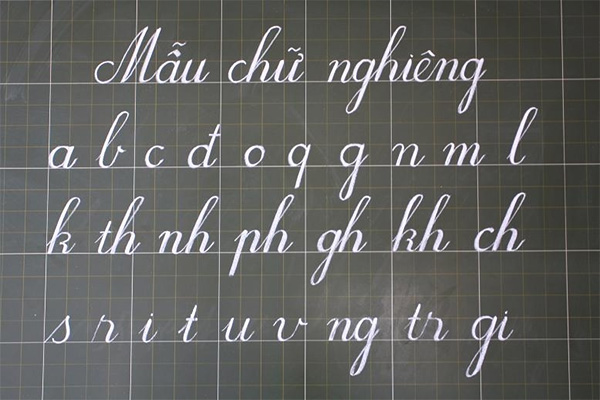 Mẫu chữ nghiêng
a b c đ o q g n m l
k th nh ph gh kh ch
s r i t u v ng tr gi